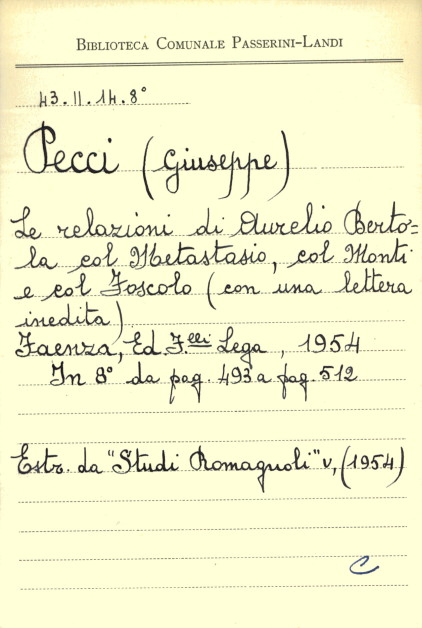 BIBLIOTECA COMUNALE PASSERINI-LANDI
43.II.14.8°
Pecci (Giuseppe)
Le relazioni di Aurelio Berto=
la col Metastasio, col Monti
e col Foscolo (con una lettera
inedita)
Faenza, Ed. F.lli Lega, 1954
In 8° da pag. 493 a pag. 512
Estr. da "Studi Romagnoli" V, (1954)
C